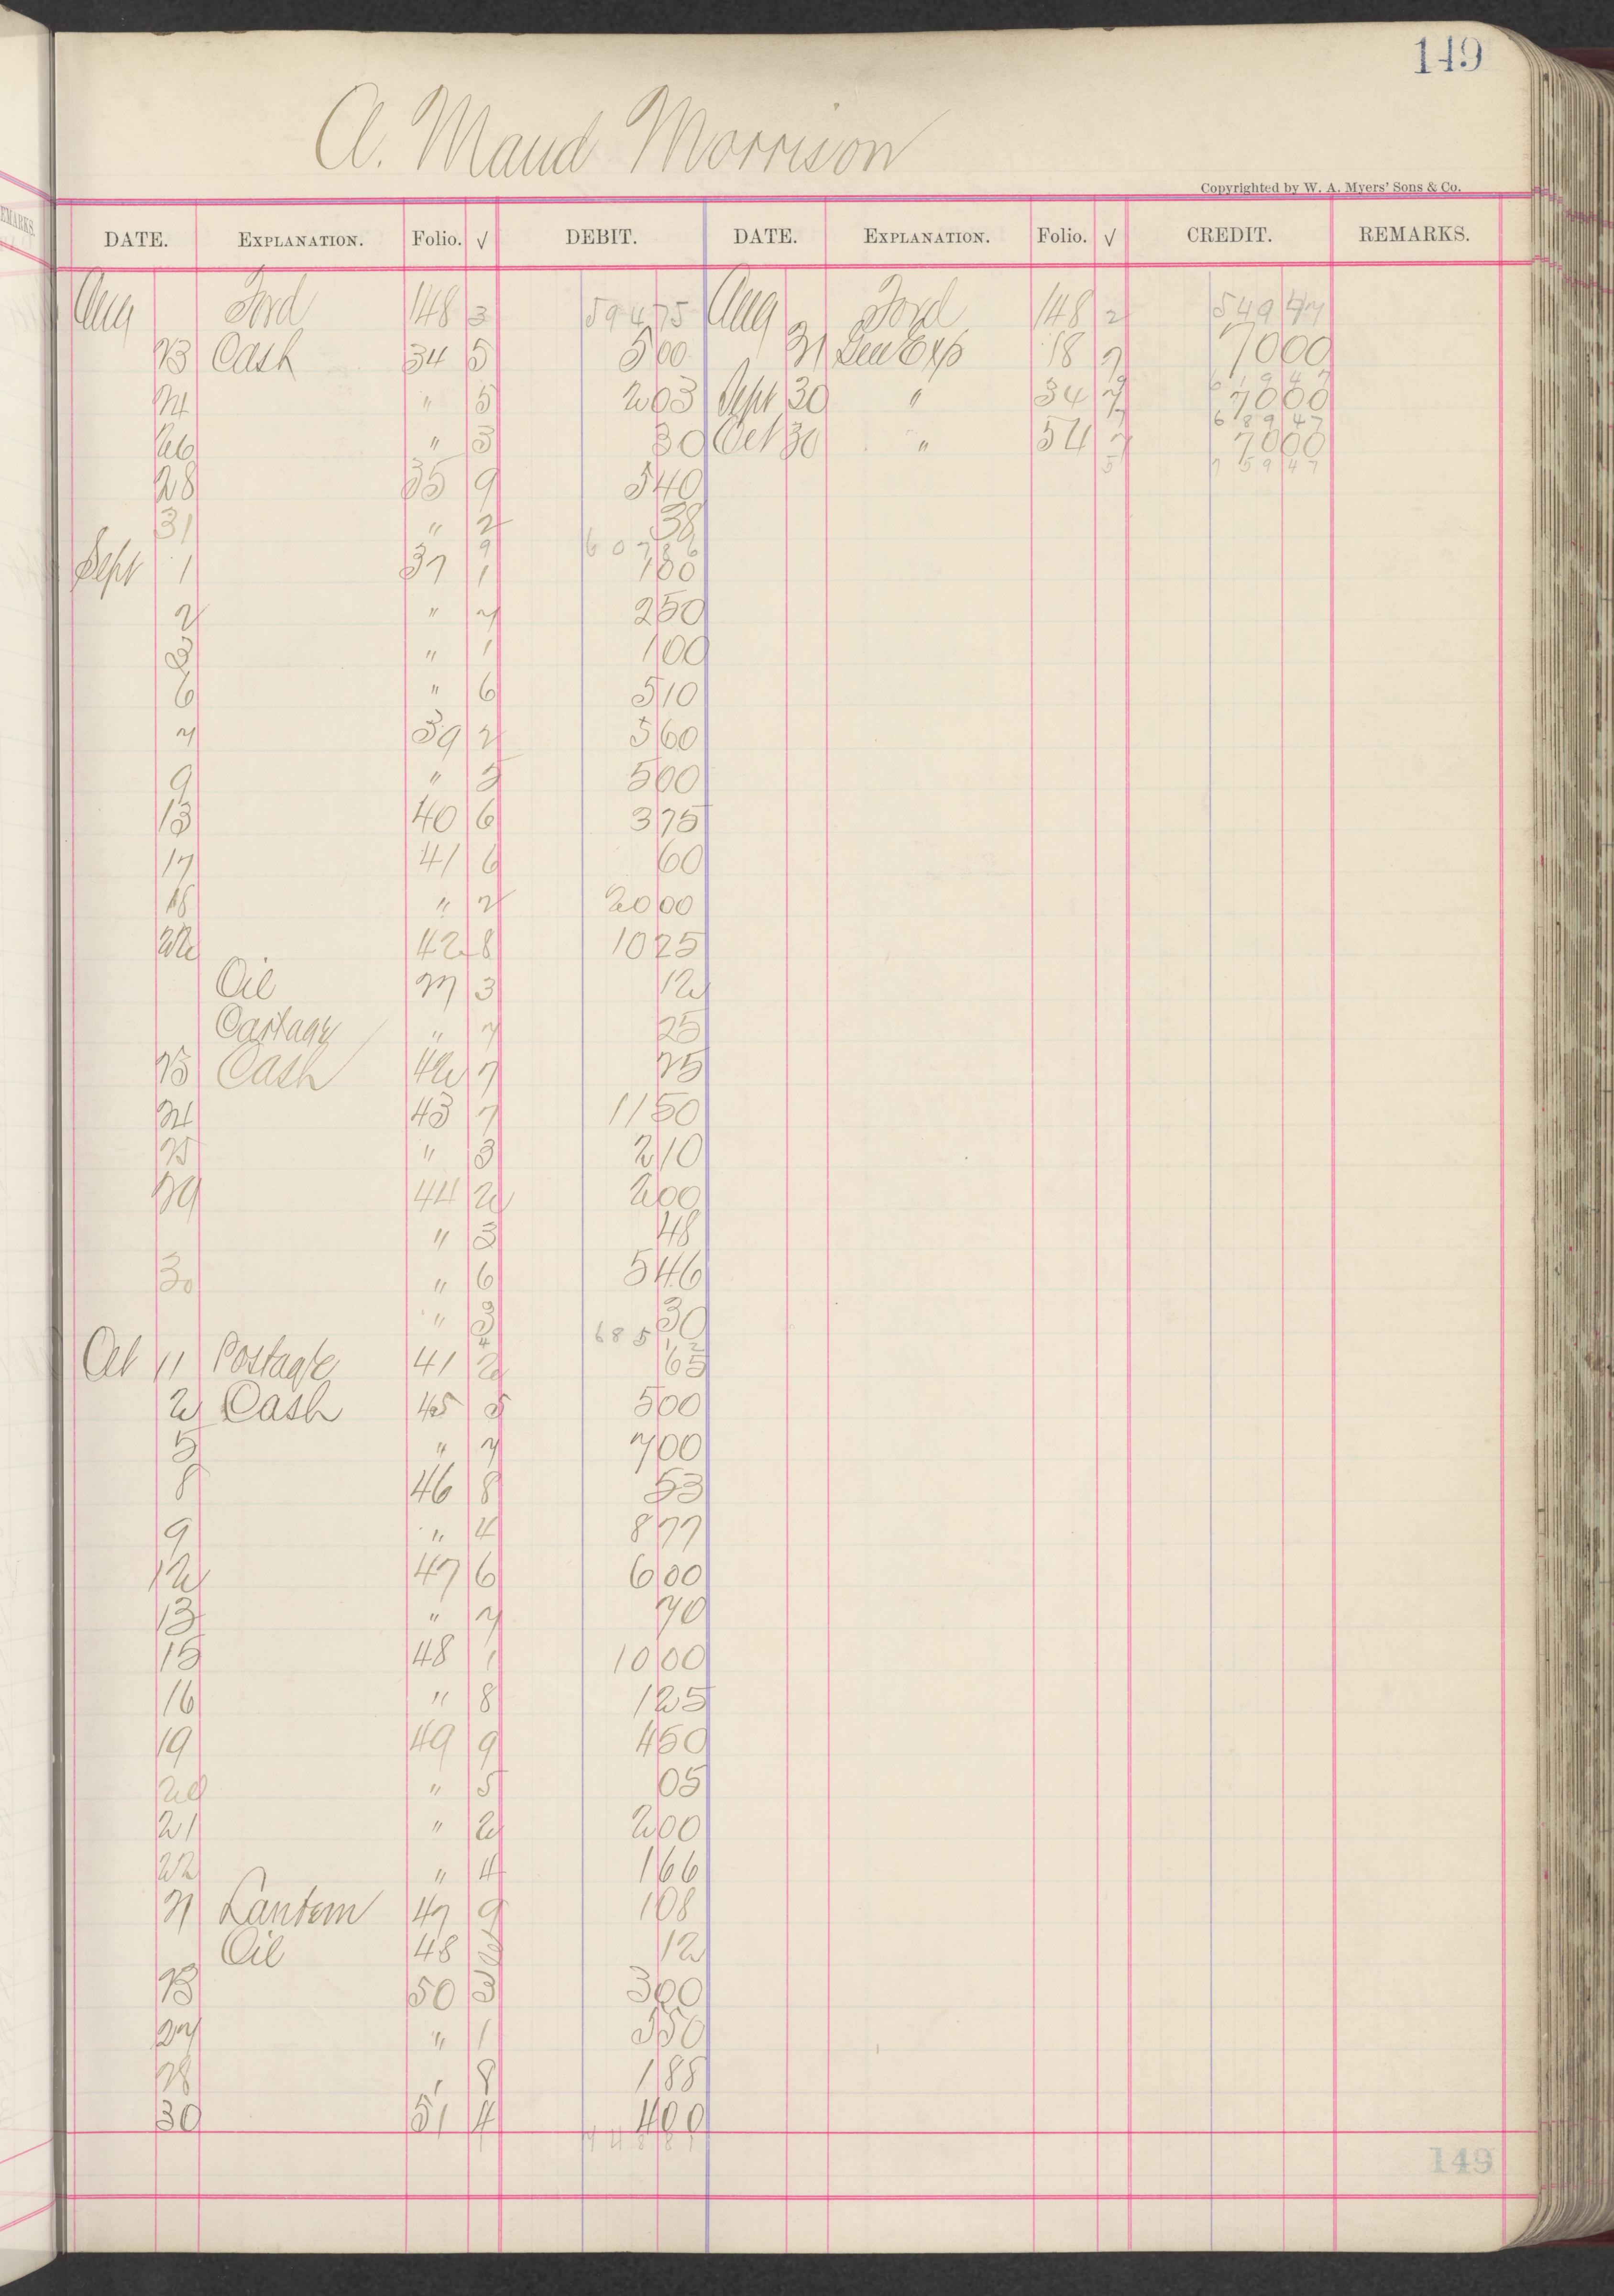 149
A. Maud Morrison
Copyrighted by W. A. Myers' Sons & Co.
DATE. EXPLANATION. Folio. √ DEBIT. DATE. EXPLANATION. Folio. √ CREDIT. REMARKS.
Aug Ford 148 3 594 75 Aug Ford 148 2 549 47
23 Cash 34 5 5 00 31 Gen Exp 18 7 70 00
24 " 5 2 03 Sept 30 " 34 7 70 00
26 " 3 30 Oct 30 " 54 7 70 00
28 35 9 5 40 759 47
31 " 2 38
607 86
Sept 1 37 1 1 80
2 " 7 2 50
3 " 1 1 00
6 " 6 5 10
7 39 2 5 60
9 " 5 5 00
13 40 6 3 75
17 41 6 60
18 " 2 20 00
22 42 8 10 25
Oil 27 3 12
Cartage " 7 25
23 Cash 42 7 75
24 43 7 11 50
25 " 3 2 10
29 44 2 2 00
" 3 48
30 " 6 5 46
" 3 30
685 12
Oct 11 Postage 41 2 65
2 Cash 45 5 5 00
5 " 7 7 00
8 46 8 53
9 " 4 8 77
12 47 6 6 00
13 " 7 70
15 48 1 10 00
16 " 8 1 25
19 49 9 4 50
20 " 5 05
21 " 2 2 00
22 " 4 1 66
21 Lantern 47 9 1 08
Oil 48 12
23 50 3 3 00
27 " 1 5 50
28 8 1 88
30 51 4 4 00
149